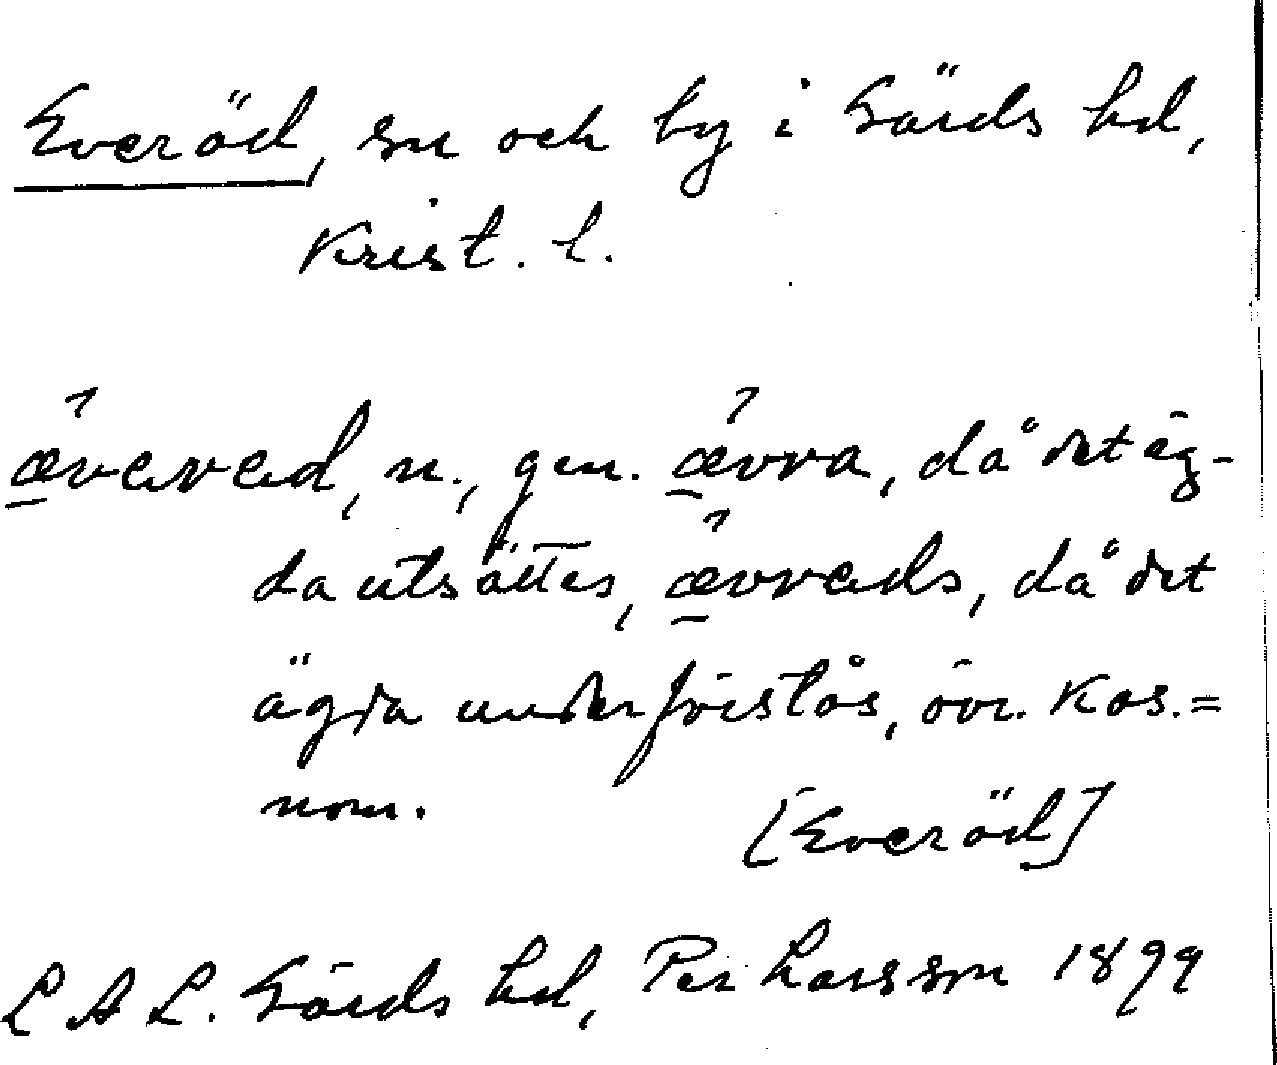 Everöd, sn och by i Gärds hd,
Krist. l.
ævered, n., gen. ævra, då det äg-
da utsättes, ævreds, då det
ägda underförstås, övr. kas. =
nom.
[Everöd]
L A L. Gärds hd, Per Larsson 1899